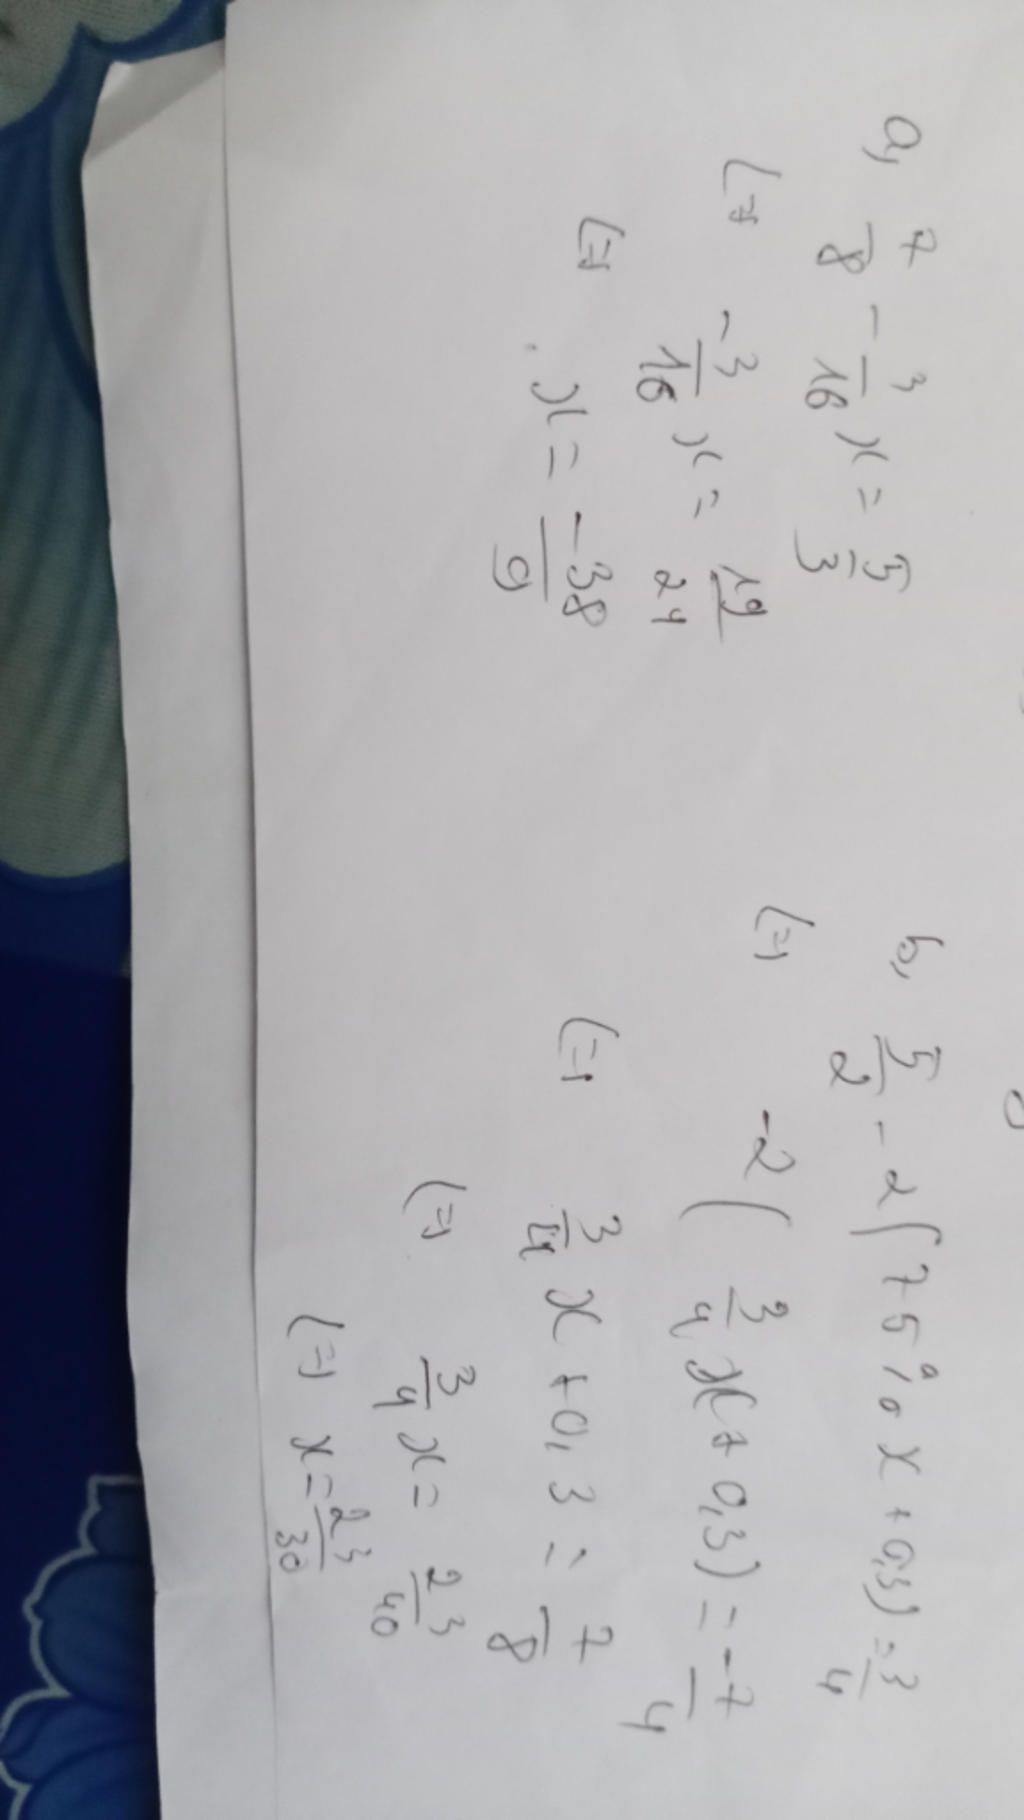 a, 7/8 - 3/16 x = 5/3
(=) -3/16 x = 19/24
(=) x = -38/9
b, 5/2 - 2(75% x + 0,3) = 3/4
(=) -2(3/4 x + 0,3) = -7/4
(=) 3/4 x + 0,3 = 7/8
(=) 3/4 x = 23/40
(=) x = 23/30